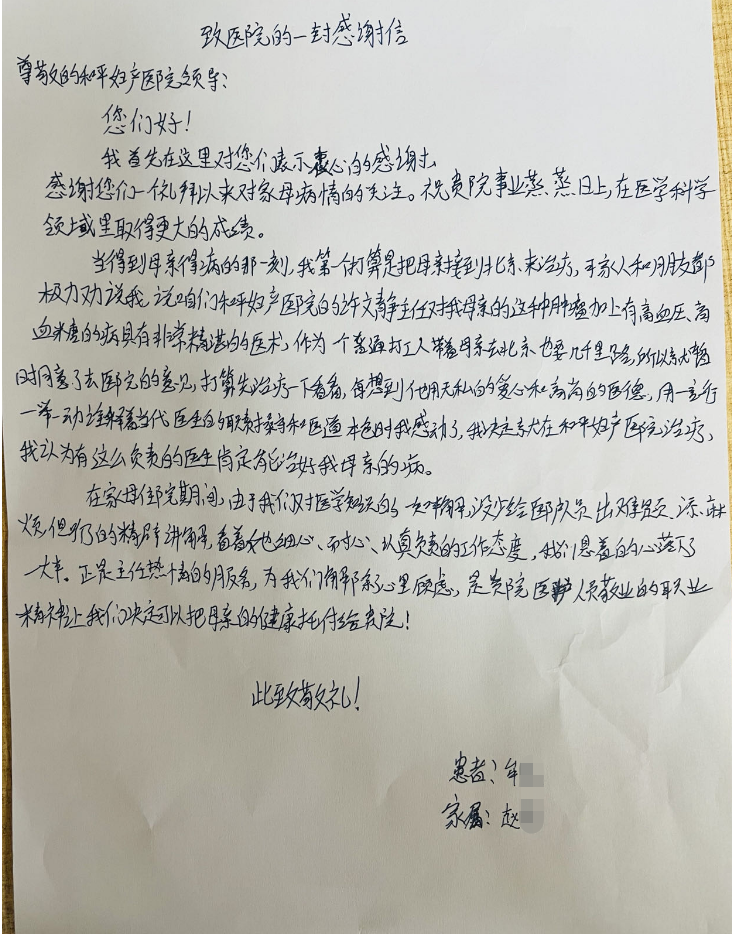 致医院的一封感谢信
尊敬的和平妇产医院领导:
您们好!
我首先在这里对您们表示衷心的感谢!
感谢您们一个礼拜以来对家母病情的关注。祝贵院事业蒸蒸日上,在医学科学
领域里取得更大的成绩。
当得到母亲得病的那一刻,我第一个打算是把母亲接到北京来治疗,可家人和朋友都
极力劝说我,说咱们和平妇产医院的许文静主任对我母亲的这种肿瘤加上有高血压、高
血糖的病具有非常精湛的医术,作为一个普通打工人带着母亲去北京也要几千里路,所以就暂
时同意了去医院的意见,打算先治疗一下看看,每想到他用无私的爱心和高尚的医德,用一言一行
一举一动诠释着当代医生的职责操守和医道本色时我感动了,我决定就在和平妇产医院治疗,
我认为有这么负责的医生肯定能治好我母亲的病。
在家母住院期间,由于我们对医学知识的一知半解,没少给医护人员出难题、添麻
烦,但 的精辟讲解,看着他细心、耐心、认真负责的工作态度,我们悬着的心落下了
大半。正是主任热情的服务,为我们解除心里顾虑,是贵院医护人员敬业的职业
精神让我们决定可以把母亲的健康托付给贵院!
此致敬礼!
患者:牟
家属:赵